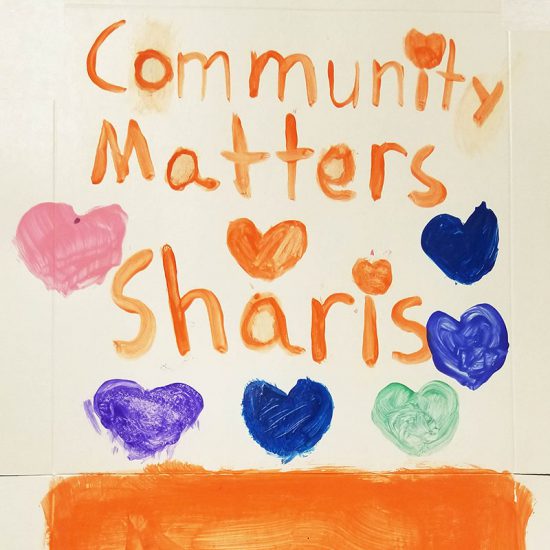 Community
Matters
Sharis